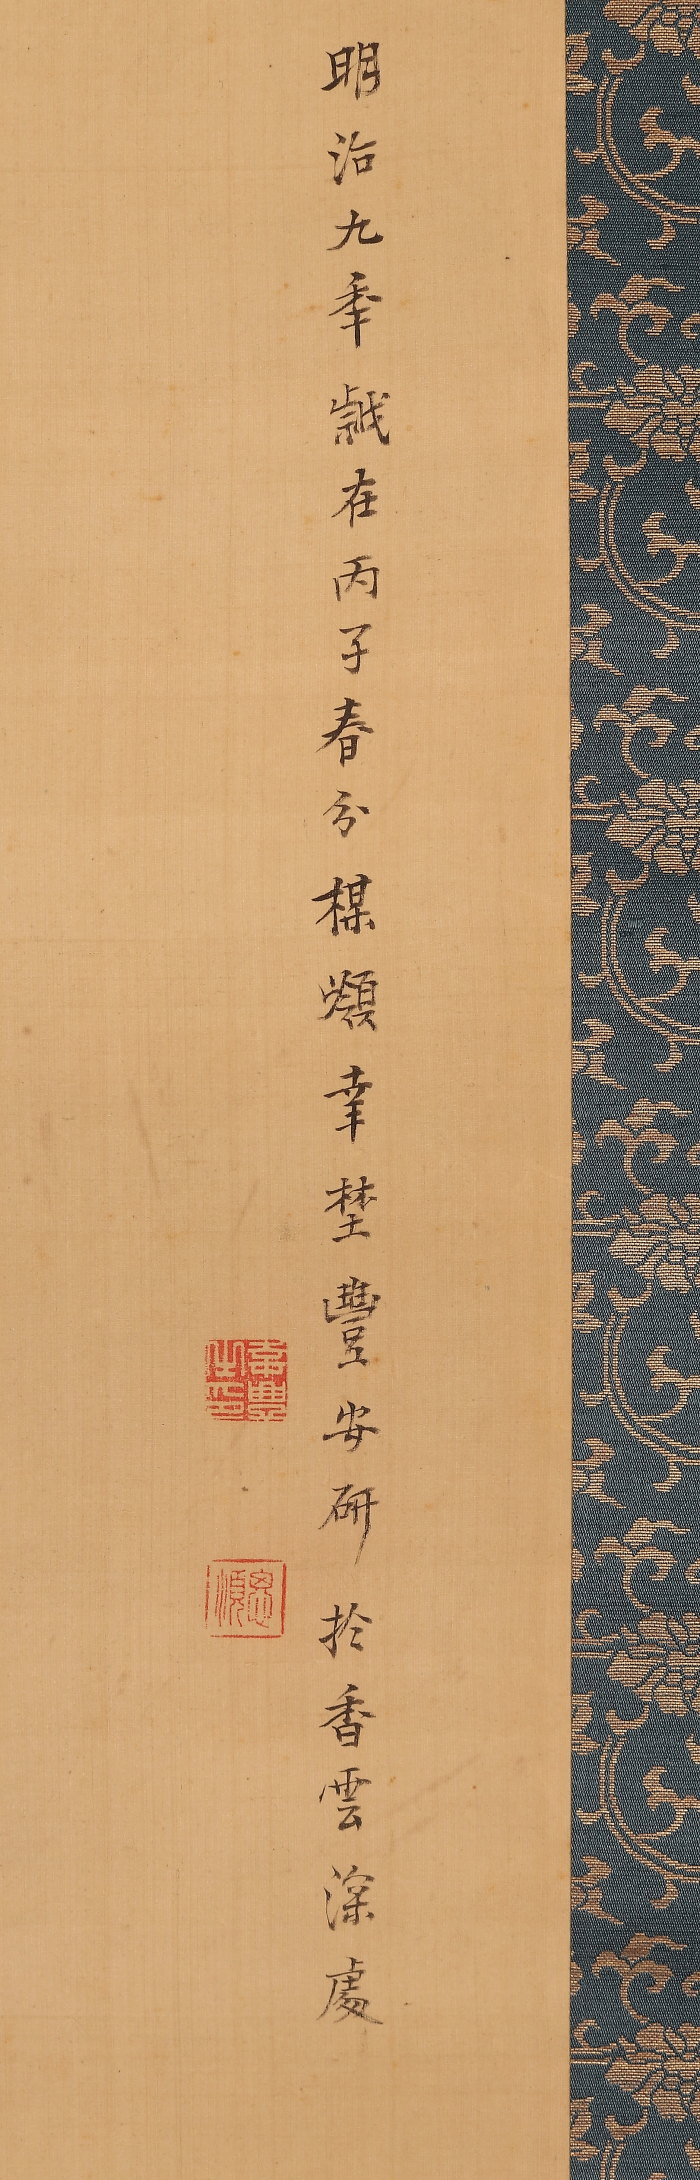 明治九秊歳在丙子春分楳嶺幸埜豐安研於香雲深處
思順